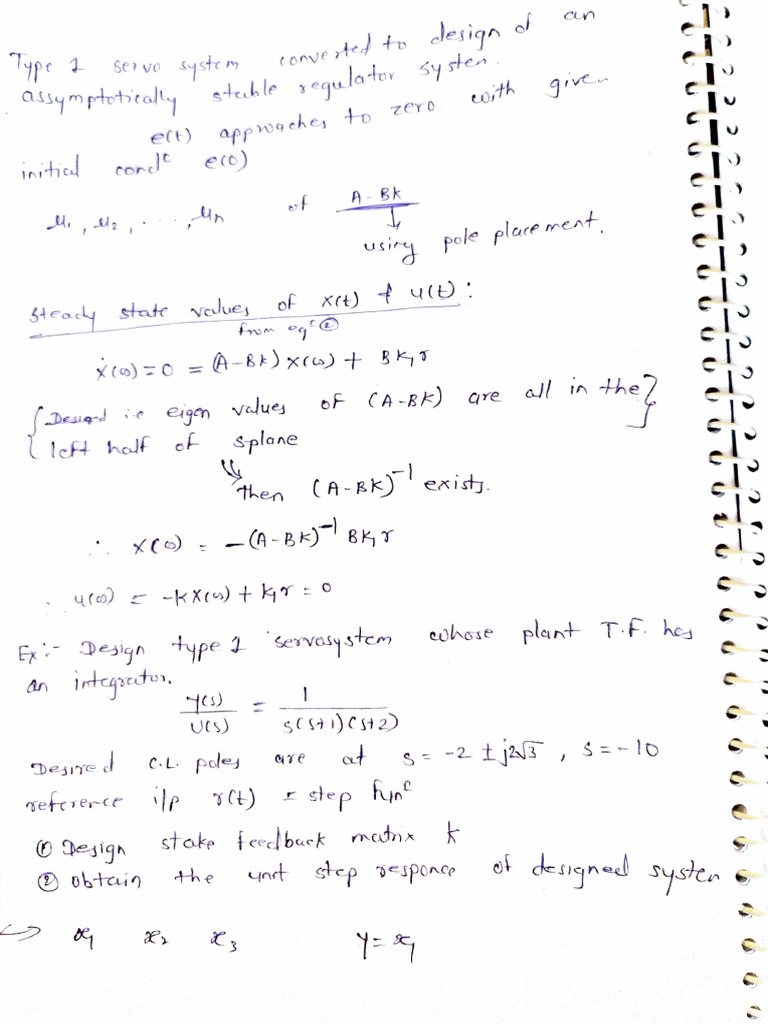 Type 1 servo system converted to design of an
assymptotically stable regulator system.
e(t) approaches to zero with given
initial condⁿ e(0)
μ₁, μ₂, ..., μn of A-BK
↓
using pole placement.
Steady state values of x(t) & u(t):
from eqⁿ ②
ẋ(∞) = 0 = (A-BK) x(∞) + BK₁r
{ Desired i.e eigen values of (A-BK) are all in the }
left half of s plane
then (A-BK)⁻¹ exists.
∴ x(∞) = -(A-BK)⁻¹ BK₁r
∴ u(∞) = -Kx(∞) + K₁r = 0
Ex:- Design type 1 servosystem whose plant T.F. has
an integrator.
Y(s)/U(s) = 1/(s(s+1)(s+2))
Desired C.L. poles are at s = -2 ± j2√3 , s = -10
reference i/p r(t) = step funᶜ
① Design state feedback matrix K
② obtain the unit step responce of designed system
↪ x₁ x₂ x₃ y = x₁